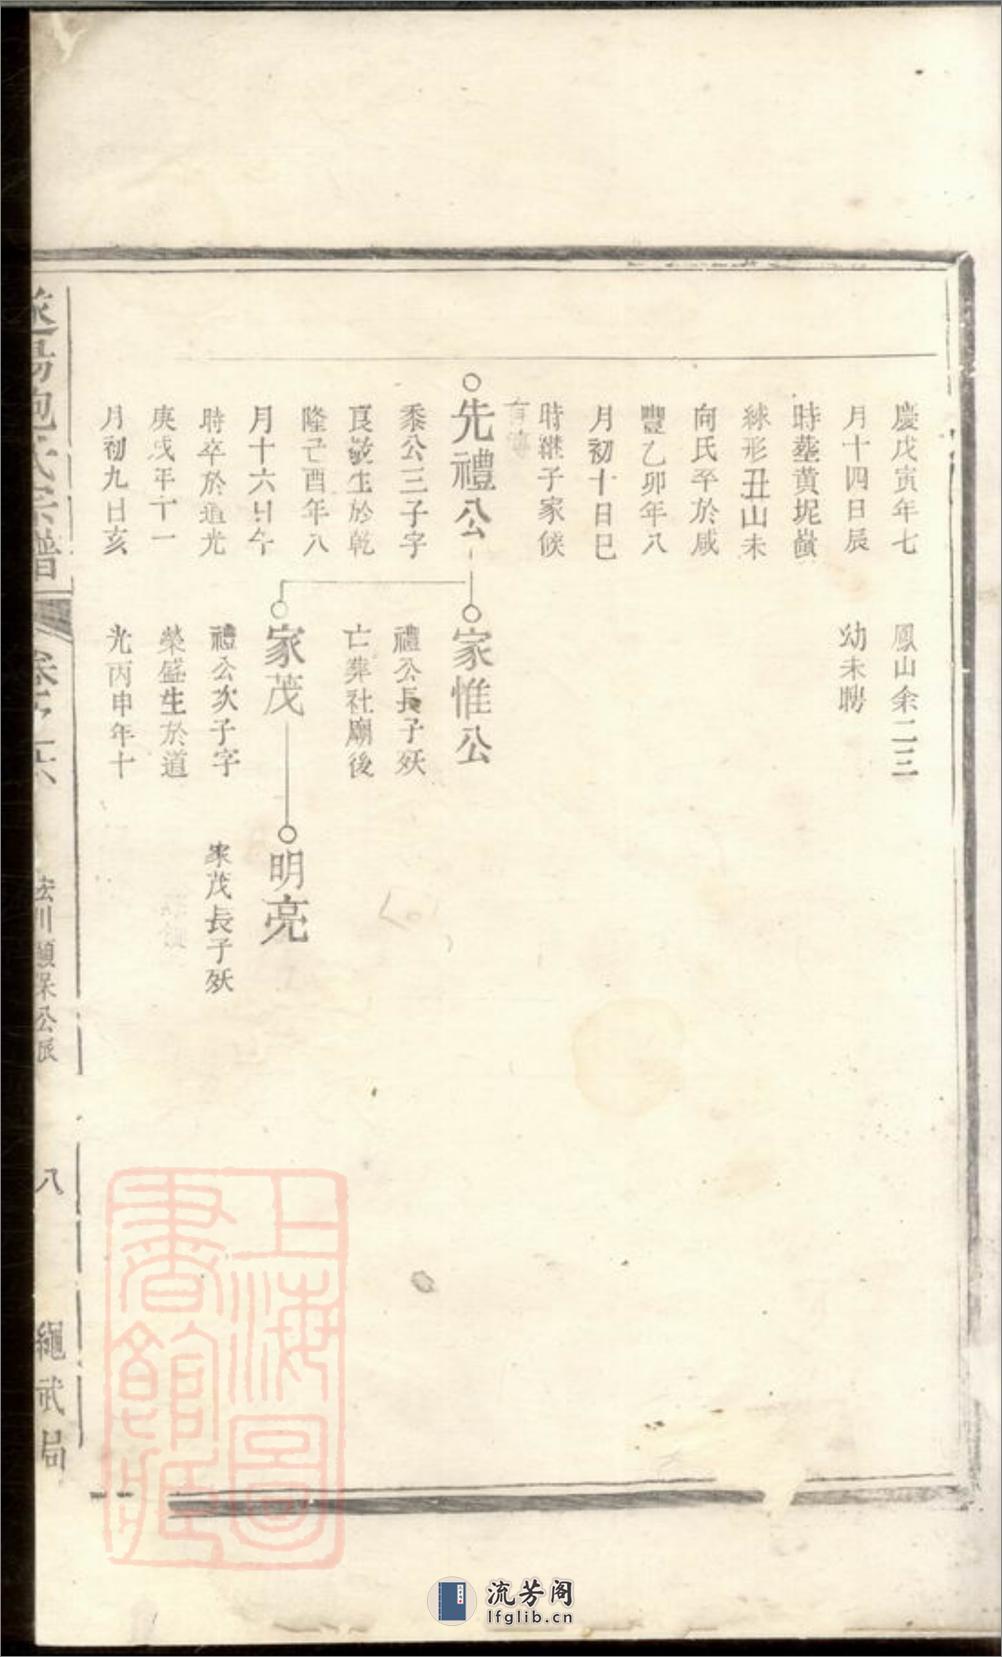 慶戊寅年七
月十四日辰
時塟黄坭嶺
絲形丑山未
向氏卒於咸
豐乙卯年八
月初十日巳
時繼子家候
鳳山余二三
幼未聘
先禮公
黍公三子字
良敬生於乾
隆己酉年八
月十六日午
時卒於道光
庚戌年十一
月初九日亥
家惟公
禮公長子殀
亡葬社廟後
家茂
禮公次子字
榮盛生於道
光丙申年十
明亮
家茂長子殀
氏宗譜
八
繩武局
上海圖書館藏
流芳阁
lfglib.cn